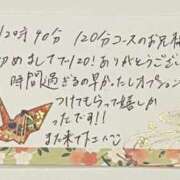 12時90分 120分コースのお兄様
初めましてで120!ありがとうございま
時間過ぎるの早かったしオプション
つけてもらって嬉しか
ったです!!
また来て下さい